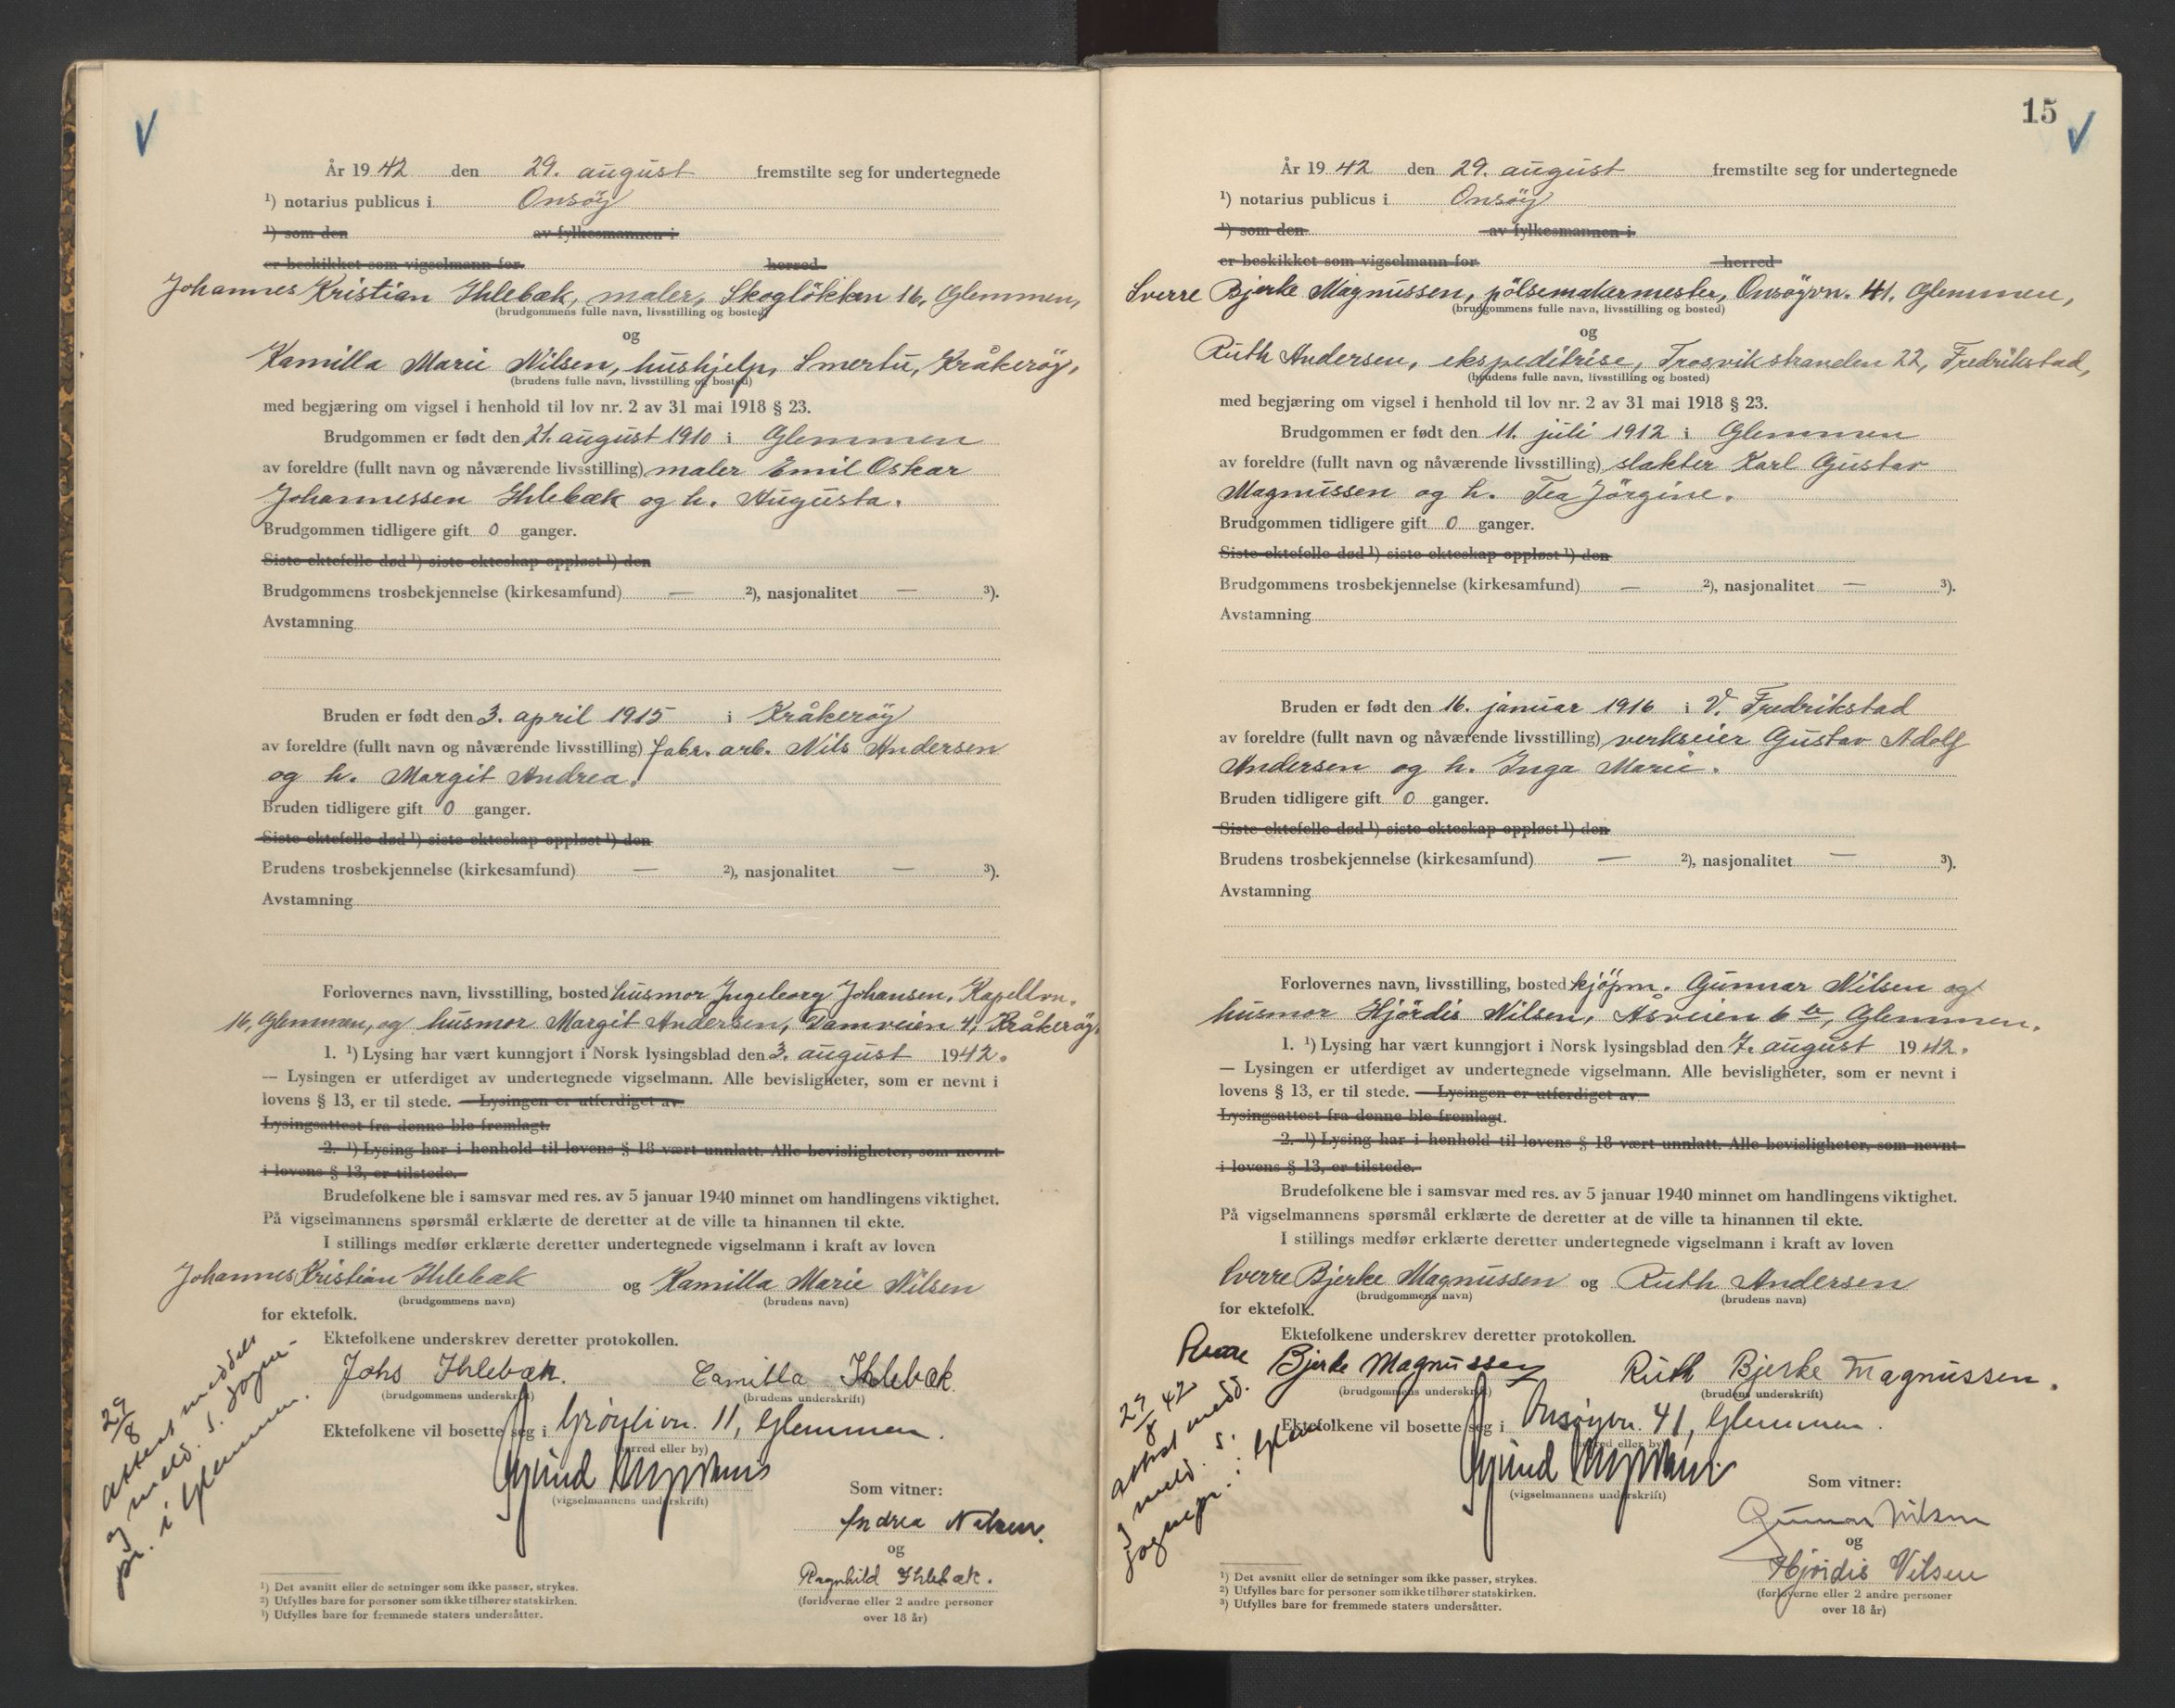 År 1942 den 29. august fremstilte seg for undertegnede
¹) notarius publicus i Onsöy
¹) som den av fylkesmannen i
er beskikket som vigselmann for herred
Johannes Kristian Ihlebæk, maler, Skoglökken 16, Glemmen,
(brudgommens fulle navn, livsstilling og bosted)
og
Kamilla Marie Nilsen, hushjelp, Smertu, Kråkeröy,
(brudens fulle navn, livsstilling og bosted)
med begjæring om vigsel i henhold til lov nr. 2 av 31 mai 1918 § 23.
Brudgommen er født den 21. august 1910 i Glemmen
av foreldre (fullt navn og nåværende livsstilling) maler Emil Oskar
Johannessen Ihlebæk og h. Augusta.
Brudgommen tidligere gift 0 ganger.
Siste ektefelle død ¹) siste ekteskap oppløst ¹) den
Brudgommens trosbekjennelse (kirkesamfund) — ²), nasjonalitet — ³).
Avstamning
Bruden er født den 3. april 1915 i Kråkeröy
av foreldre (fullt navn og nåværende livsstilling) fabr. arb. Nils Andersen
og h. Margit Andrea.
Bruden tidligere gift 0 ganger.
Siste ektefelle død ¹) siste ekteskap oppløst ¹) den
Brudens trosbekjennelse (kirkesamfund) — ²), nasjonalitet — ³).
Avstamning
Forlovernes navn, livsstilling, bosted husmor Ingeborg Johansen, Kapellvn.
16, Glemmen, og husmor Margit Andersen, Damveien 4, Kråkeröy.
1. ¹) Lysing har vært kunngjort i Norsk lysingsblad den 3. august 1942.
— Lysingen er utferdiget av undertegnede vigselmann. Alle bevisligheter, som er nevnt i
lovens § 13, er til stede. — Lysingen er utferdiget av
Lysingsattest fra denne ble fremlagt.
2. ¹) Lysing har i henhold til lovens § 18 vært unnlatt. Alle bevisligheter, som nevnt
i lovens § 13, er tilstede.
Brudefolkene ble i samsvar med res. av 5 januar 1940 minnet om handlingens viktighet.
På vigselmannens spørsmål erklærte de deretter at de ville ta hinannen til ekte.
I stillings medfør erklærte deretter undertegnede vigselmann i kraft av loven
Johannes Kristian Ihlebæk og Kamilla Marie Nilsen
(brudgommens navn) (brudens navn)
for ektefolk.
Ektefolkene underskrev deretter protokollen.
Johs Ihlebæk. Camilla Ihlebæk.
(brudgommens underskrift) (brudens underskrift)
Ektefolkene vil bosette seg i Gröylivn. 11, Glemmen.
(herred eller by)
(vigselmannens underskrift)
Som vitner:
Andrea Nilsen.
og
Ragnhild Ihlebæk.
(forloverne eller 2 andre personer
over 18 år)
29/8
attest meddelt
og meld. s. sogne-
pr. i Glemmen.
¹) Det avsnitt eller de setninger som ikke passer, strykes.
²) Utfylles bare for personer som ikke tilhører statskirken.
³) Utfylles bare for fremmede staters undersåtter.
15
År 1942 den 29. august fremstilte seg for undertegnede
¹) notarius publicus i Onsöy
¹) som den av fylkesmannen i
er beskikket som vigselmann for herred
Sverre Bjerke Magnussen, pölsemakermester, Onsöyvn. 41, Glemmen,
(brudgommens fulle navn, livsstilling og bosted)
og
Ruth Andersen, ekspeditrise, Trosvikstranden 22, Fredrikstad,
(brudens fulle navn, livsstilling og bosted)
med begjæring om vigsel i henhold til lov nr. 2 av 31 mai 1918 § 23.
Brudgommen er født den 11. juli 1912 i Glemmen
av foreldre (fullt navn og nåværende livsstilling) slakter Karl Gustav
Magnussen og h. Tea Jörgine.
Brudgommen tidligere gift 0 ganger.
Siste ektefelle død ¹) siste ekteskap oppløst ¹) den
Brudgommens trosbekjennelse (kirkesamfund) — ²), nasjonalitet — ³).
Avstamning
Bruden er født den 16. januar 1916 i V. Fredrikstad
av foreldre (fullt navn og nåværende livsstilling) verkseier Gustav Adolf
Andersen og h. Inga Marie.
Bruden tidligere gift 0 ganger.
Siste ektefelle død ¹) siste ekteskap oppløst ¹) den
Brudens trosbekjennelse (kirkesamfund) — ²), nasjonalitet — ³).
Avstamning
Forlovernes navn, livsstilling, bosted kjöpm. Gunnar Nilsen og
husmor Hjördis Nilsen, Åsveien 6 b, Glemmen.
1. ¹) Lysing har vært kunngjort i Norsk lysingsblad den 7. august 1942.
— Lysingen er utferdiget av undertegnede vigselmann. Alle bevisligheter, som er nevnt i
lovens § 13, er til stede. — Lysingen er utferdiget av
Lysingsattest fra denne ble fremlagt.
2. ¹) Lysing har i henhold til lovens § 18 vært unnlatt. Alle bevisligheter, som nevnt
i lovens § 13, er tilstede.
Brudefolkene ble i samsvar med res. av 5 januar 1940 minnet om handlingens viktighet.
På vigselmannens spørsmål erklærte de deretter at de ville ta hinannen til ekte.
I stillings medfør erklærte deretter undertegnede vigselmann i kraft av loven
Sverre Bjerke Magnussen og Ruth Andersen
(brudgommens navn) (brudens navn)
for ektefolk.
Ektefolkene underskrev deretter protokollen.
Sverre Bjerke Magnussen Ruth Bjerke Magnussen.
(brudgommens underskrift) (brudens underskrift)
Ektefolkene vil bosette seg i Onsöyvn. 41, Glemmen.
(herred eller by)
(vigselmannens underskrift)
Som vitner:
Gunnar Nilsen
og
Hjördis Nilsen
(forloverne eller 2 andre personer
over 18 år)
29/8 42
attest medd.
og meld. s.
sognepr. i Glem
¹) Det avsnitt eller de setninger som ikke passer, strykes.
²) Utfylles bare for personer som ikke tilhører statskirken.
³) Utfylles bare for fremmede staters undersåtter.